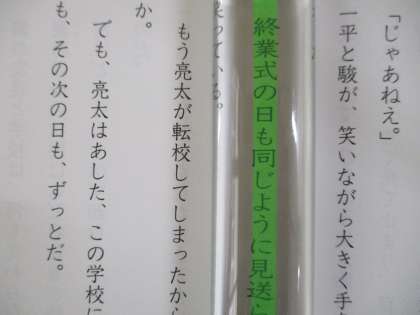 「じゃあねえ。」
一平と駿が、笑いながら大きく手
終業式の日も同じように見送ら
っている。
もう亮太が転校してしまったから
か。
でも、亮太はあした、この学校に
も、その次の日も、ずっとだ。